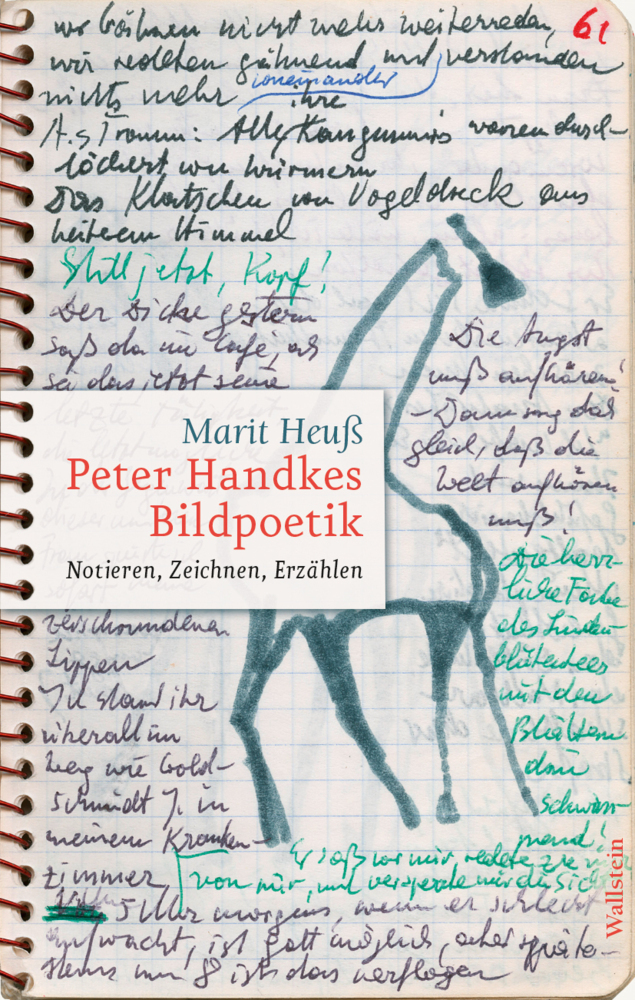 wir können nicht mehr weiterreden,
61
wir redeten gähnend und verstanden
voneinander
nichts mehr
ihre
A.s Traum: Alle Kängurus waren durch-
löchert von Würmern
Das Klatschen von Vogeldreck aus
heiterem Himmel
Still jetzt, Kopf!
Der Dicke gestern
saß da im Café, als
sei das jetzt seine
letzte
Die Angst
muß aufhören!
– Dann sag das
gleich, daß die
Welt aufhören
muß!
Marit Heuß
Peter Handkes
Bildpoetik
Notieren, Zeichnen, Erzählen
Die herr-
liche Farbe
des Linden-
blütentees
mit den
Blättern
drin
schwim-
mend!
verschwundenen
Lippen
Ich stand ihr
überall im
Weg wie Gold-
schmidt J. in
meinem Kranken-
zimmer
Er saß vor mir, redete
von mir, und versperrte mir die Sicht
5 Uhr morgens, wenn er schlecht
aufwacht, ist Gott möglich, aber späte-
stens um 8 ist das verflogen
Wallstein